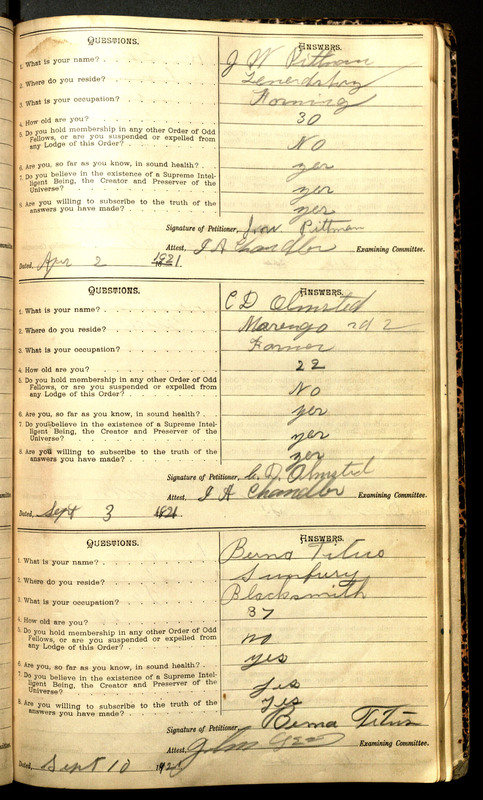 QUESTIONS. ANSWERS.
1. What is your name? J W Pittman
2. Where do you reside?
3. What is your occupation? Farming
4. How old are you? 30
5. Do you hold membership in any other Order of Odd
Fellows, or are you suspended or expelled from
any Lodge of this Order? No
6. Are you, so far as you know, in sound health? yes
7. Do you believe in the existence of a Supreme Intel-
ligent Being, the Creator and Preserver of the
Universe? yes
8. Are you willing to subscribe to the truth of the
answers you have made? yes
Signature of Petitioner, Pittman
Attest, I A Chandler Examining Committee.
Dated, Apr 2 1921.
QUESTIONS. ANSWERS.
1. What is your name? C D Olmsted
2. Where do you reside? Marengo rd 2
3. What is your occupation? Farmer
4. How old are you? 22
5. Do you hold membership in any other Order of Odd
Fellows, or are you suspended or expelled from
any Lodge of this Order? No
6. Are you, so far as you know, in sound health? yes
7. Do you believe in the existence of a Supreme Intel-
ligent Being, the Creator and Preserver of the
Universe? yes
8. Are you willing to subscribe to the truth of the
answers you have made? yes
Signature of Petitioner, C. D. Olmsted
Attest, I A Chandler Examining Committee.
Dated, Sept 3 1921.
QUESTIONS. ANSWERS.
1. What is your name? Berna Titus
2. Where do you reside? Sunbury
3. What is your occupation? Blacksmith
4. How old are you? 37
5. Do you hold membership in any other Order of Odd
Fellows, or are you suspended or expelled from
any Lodge of this Order? no
6. Are you, so far as you know, in sound health? yes
7. Do you believe in the existence of a Supreme Intel-
ligent Being, the Creator and Preserver of the
Universe? yes
8. Are you willing to subscribe to the truth of the
answers you have made? yes
Signature of Petitioner, Berna Titus
Attest, John Examining Committee.
Dated, Sept 10 1921